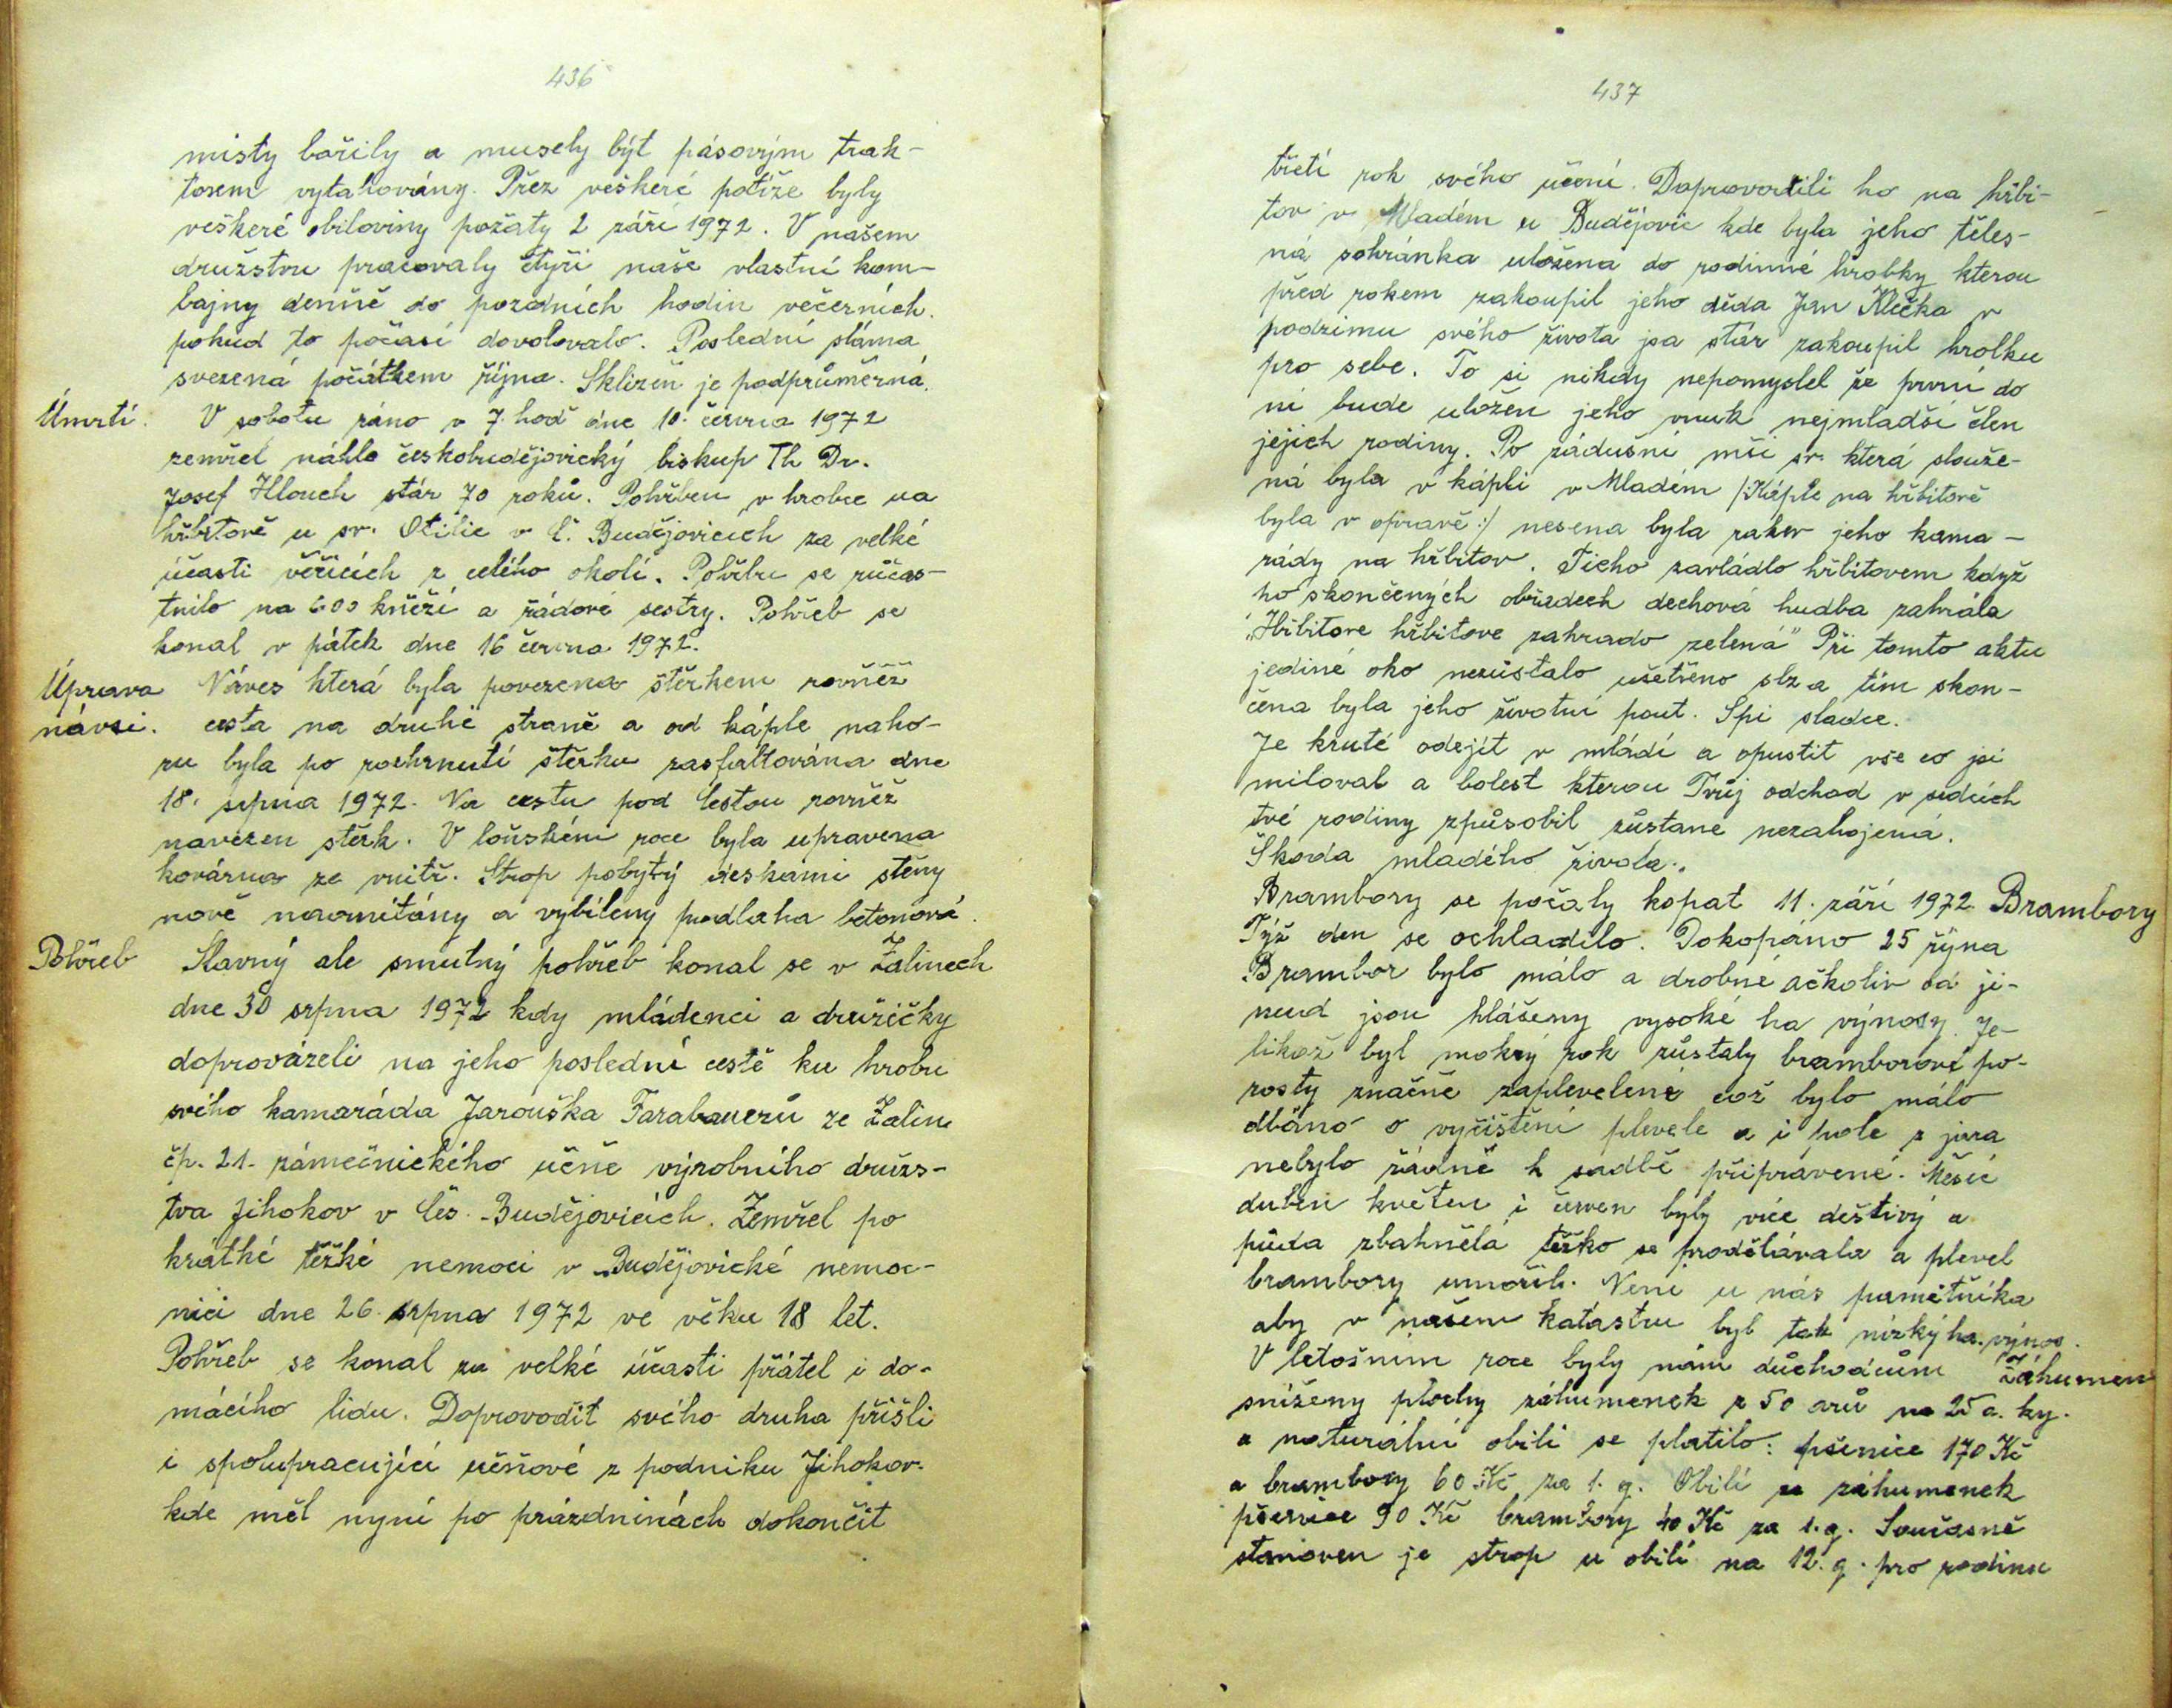 436
místy bořily a musely být pásovým trak-
torem vytahovány. Přez veškeré potíže byly
veškeré obiloviny požaty 2 září 1972. V našem
družstvu pracovaly čtyři naše vlastní kom-
bajny denně do pozdních hodin večerních.
pokud to počasí dovolovalo. Poslední sláma
svezená počátkem října. Sklizeň je podprůměrná.
Úmrtí. V sobotu ráno v 7. hod dne 10. června 1972
zemřel náhle českobudějovický biskup Th Dr.
Josef Hlouch stár 70 roků. Pohřben v hrobce na
hřbitově u sv. Otilie v Č. Budějovicích za velké
účasti věřících z celého okolí. Pohřbu se zúčas-
tnilo na 600 kněží a řádové sestry. Pohřeb se
konal v pátek dne 16 června 1972.
Úprava Náves která byla povezena štěrkem rovněž
návsi. cesta na druhé straně a od káple naho-
ru byla po rozhrnutí štěrku zasfaltována dne
18. srpna 1972. Na cestu pod cestou rovněž
navezen štěrk. V loňském roce byla upravena
kovárna ze vnitř. Strop pobytý deskami stěny
nově naomítány a vybíleny podlaha betonová.
Pohřeb Slavný ale smutný pohřeb konal se v Žalinech
dne 30 srpna 1972 kdy mládenci a družičky
doprovázeli na jeho poslední cestě ku hrobu
svého kamaráda Jarouška Farabauerů ze Žalin
čp. 21. zámečnického učně výrobního družs-
tva Jihokov v Čes. Budějovicích. Zemřel po
krátké těžké nemoci v Budějovické nemoc-
nici dne 26. srpna 1972 ve věku 18 let.
Pohřeb se konal za velké účasti přátel i do-
mácího lidu. Doprovodit svého druha přišli
i spolupracující učňové z podniku Jihokov.
kde měl nyní po prázdninách dokončit
437
třetí rok svého učení. Doprovodili ho na hřbi-
tov v Mladém u Budějovic kde byla jeho těles-
ná schránka uložena do rodinné hrobky kterou
před rokem zakoupil jeho děda Jan Klečka v
podzimu svého života jsa stár zakoupil hrobku
pro sebe. To si nikdy nepomyslel že první do
ní bude uložen jeho vnuk nejmladší člen
jejich rodiny. Po zádušní mši sv. která slouže-
ná byla v kápli v Mladém /Káple na hřbitově
byla v opravě:/ nesena byla rakev jeho kama-
rády na hřbitov. Ticho zavládlo hřbitovem když
po skončených obřadech dechová hudba zahrála
"Hřbitove hřbitove zahrado zelená" Při tomto aktu
jediné oko nezůstalo ušetřeno slz a tím skon-
čena byla jeho životní pout. Spi sladce.
Je kruté odejít v mládí a opustit vše co jsi
miloval a bolest kterou Tvůj odchod v srdcích
tvé rodiny způsobil zůstane nezahojená.
Škoda mladého života.
Brambory se počaly kopat 11. září 1972 Brambory
Týž den se ochladilo. Dokopáno 25 října
Brambor bylo málo a drobné ačkoliv od ji-
nud jsou hlášeny vysoké ha výnosy. Je-
likož byl mokrý rok zůstaly bramborové po-
rosty značně zaplevelené což bylo málo
dbáno o vyčištění plevele a i pole z jara
nebylo řádně k sadbě připravené. Měsíc
duben květen i červen byly více deštivý a
půda zbahněla těžko se prodělávala a plevel
brambory umořil. Není u nás pamětníka
aby v našem katastru byl tak nízký ha. výnos.
V letošním roce byly nám důchodcům Záhumen
sníženy plochy záhumenek z 50 arů na 25 a. ky.
a naturální obilí se platilo: pšenice 170 Kč
a brambory 60 Kč za 1. q. Obilí ze záhumenek
pšenice 90 Kč brambory 40 Kč za 1.q. Současně
stanoven je strop u obilí na 12. q. pro rodinu